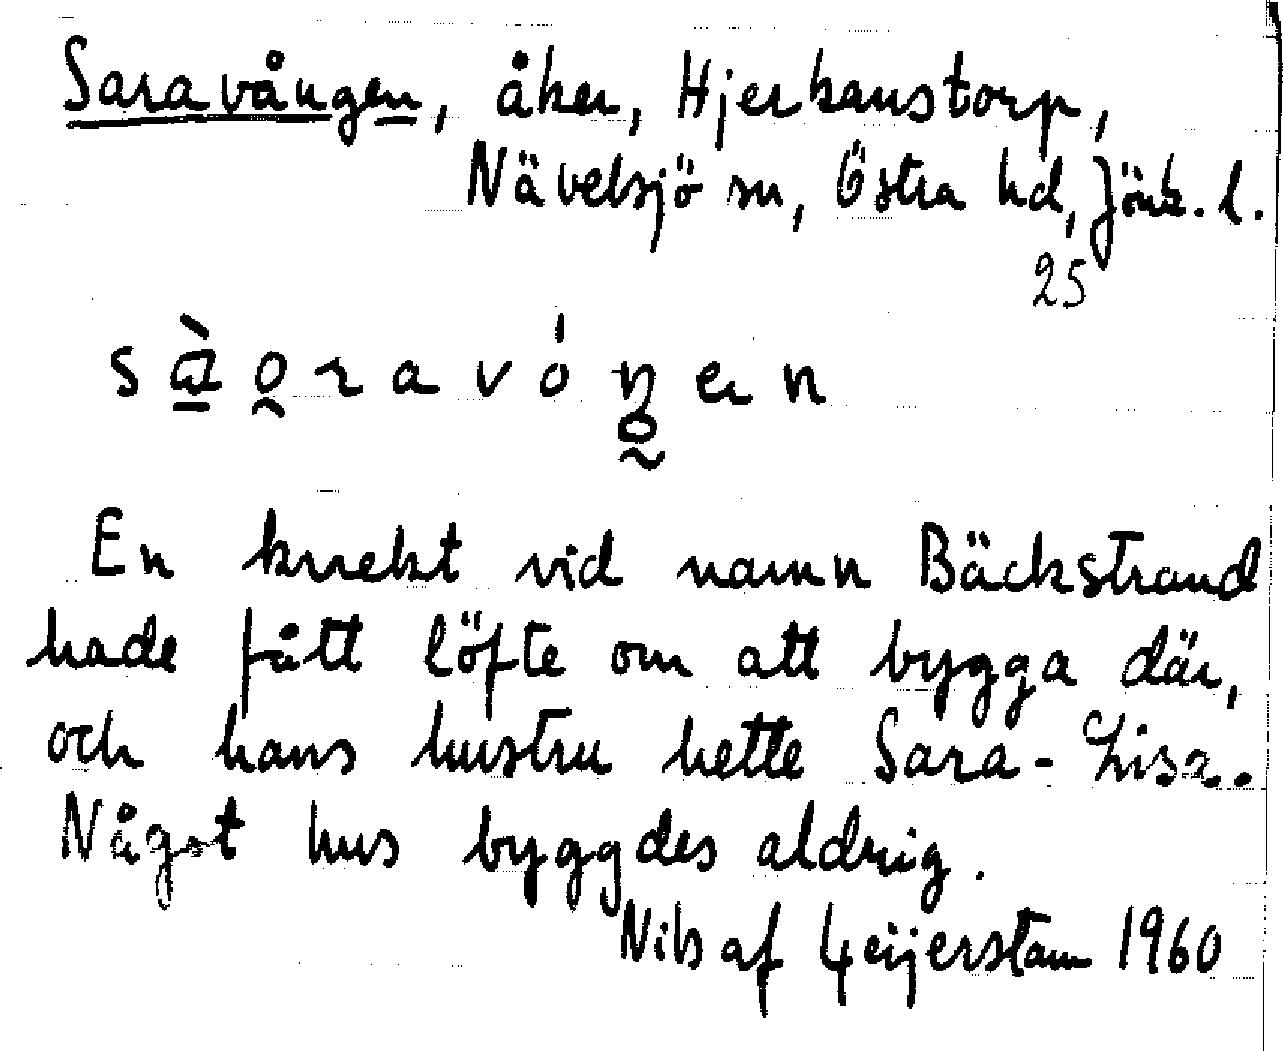 Saravången, åker, Hjerkanstorp,
Nävelsjö sn, Östra hd, Jönk. l.
25
En knekt vid namn Bäckstrand
hade fått löfte om att bygga där,
och hans hustru hette Sara-Lisa.
Något hus byggdes aldrig.
Nils af Geijerstam 1960